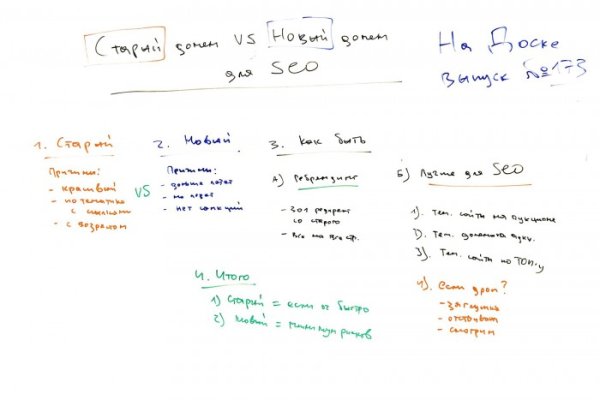 Старый домен VS Новый домен
для SEO
На Доске
выпуск №173
1. Старый
Причины:
- красивый
- по тематике
с ссылками
- с возрастом
VS
2. Новый
Причины:
- дольше
- нет санкций
3. Как быть
А) Ребрендинг
- 301 редирект
со старого
- Все на все стр.
Б) Лучше для SEO
1). Тем. сайты на аукционе
2). Тем. домена аукц.
3). Тем. сайты по ТОП-у
4). если дроп?
- заглушка
- отстаивам
- смотрим
4. Итого
1) Старый = если ок быстро
2) Новый = минимум рисков